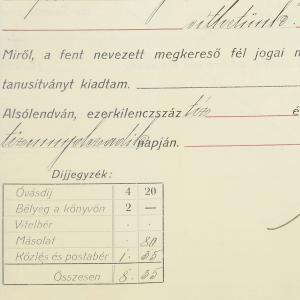 Miről, a fent nevezett megkereső fél jogai
tanusítványt kiadtam.
Alsólendván, ezerkilenczszáz tíz é
tizennyolczadik napján.
Díjjegyzék:
Óvásdíj 4 20
Bélyeg a könyvön 2 —
Vitelbér . .
Másolat . 80
Közlés és postabér 1 . 35
Összesen 8 . 35